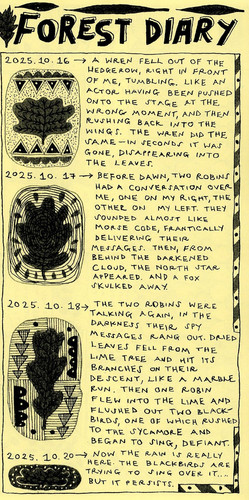 FOREST DIARY
2025.10.16 → A WREN FELL OUT OF THE
HEDGEROW, RIGHT IN FRONT
OF ME, TUMBLING. LIKE AN
ACTOR HAVING BEEN PUSHED
ONTO THE STAGE AT THE
WRONG MOMENT, AND THEN
RUSHING BACK INTO THE
WINGS. THE WREN DID THE
SAME – IN SECONDS IT WAS
GONE, DISAPPEARING INTO
THE LEAVES.
2025.10.17 → BEFORE DAWN, TWO ROBINS
HAD A CONVERSATION OVER
ME, ONE ON MY RIGHT, THE
OTHER ON MY LEFT. THEY
SOUNDED ALMOST LIKE
MORSE CODE, FRANTICALLY
DELIVERING THEIR
MESSAGES. THEN, FROM
BEHIND THE DARKENED
CLOUD, THE NORTH STAR
APPEARED. AND A FOX
SKULKED AWAY.
2025.10.18 → THE TWO ROBINS WERE
TALKING AGAIN, IN THE
DARKNESS THEIR SPY
MESSAGES RANG OUT. DRIED
LEAVES FELL FROM THE
LIME TREE AND HIT ITS
BRANCHES ON THEIR
DESCENT, LIKE A MARBLE
RUN. THEN ONE ROBIN
FLEW INTO THE LIME AND
FLUSHED OUT TWO BLACK-
BIRDS, ONE OF WHICH RUSHED
TO THE SYCAMORE AND
BEGAN TO SING, DEFIANT.
2025.10.20 → NOW THE RAIN IS REALLY
HERE. THE BLACKBIRDS ARE
TRYING TO SING OVER IT...
BUT IT PERSISTS.